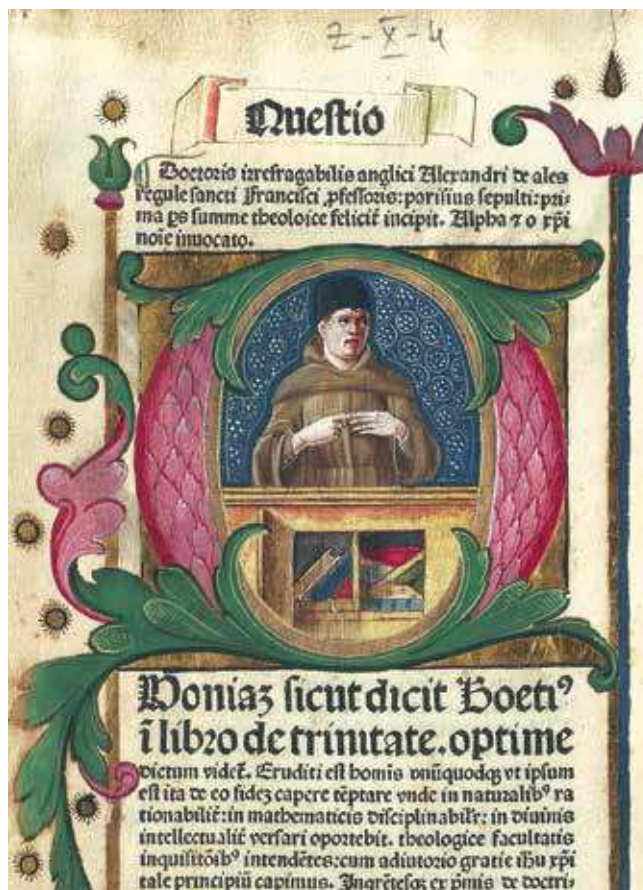 Z-X-4
Questio
Doctoris irrefragabilis anglici Alexandri de ales
regule sancti Francisci ꝓfessoris: parisius sepulti: pri⸗
ma ps summe theoloice felicit̄ incipit. Alpha ⁊ o xp̄i
noīe inuocato.
Qoniaꝫ sicut dicit Boetiꝰ
ī libro de trinitate. optime
dictum videt̄. Eruditi est homis vnūquodqꝫ vt ipsum
est ita de eo fideꝫ capere tēptare vnde in naturalibꝰ ra
tionabilit̄: in mathematicis disciplinabilr̄: in diuinis
intellectualit̄ versari oportebit. theologice facultatis
inquisitōibꝰ intendētes: cum adiutorio gratie ihu xp̄i
tale principiū capimus. Ingrētesqꝫ ex p̄mis de doctri⸗